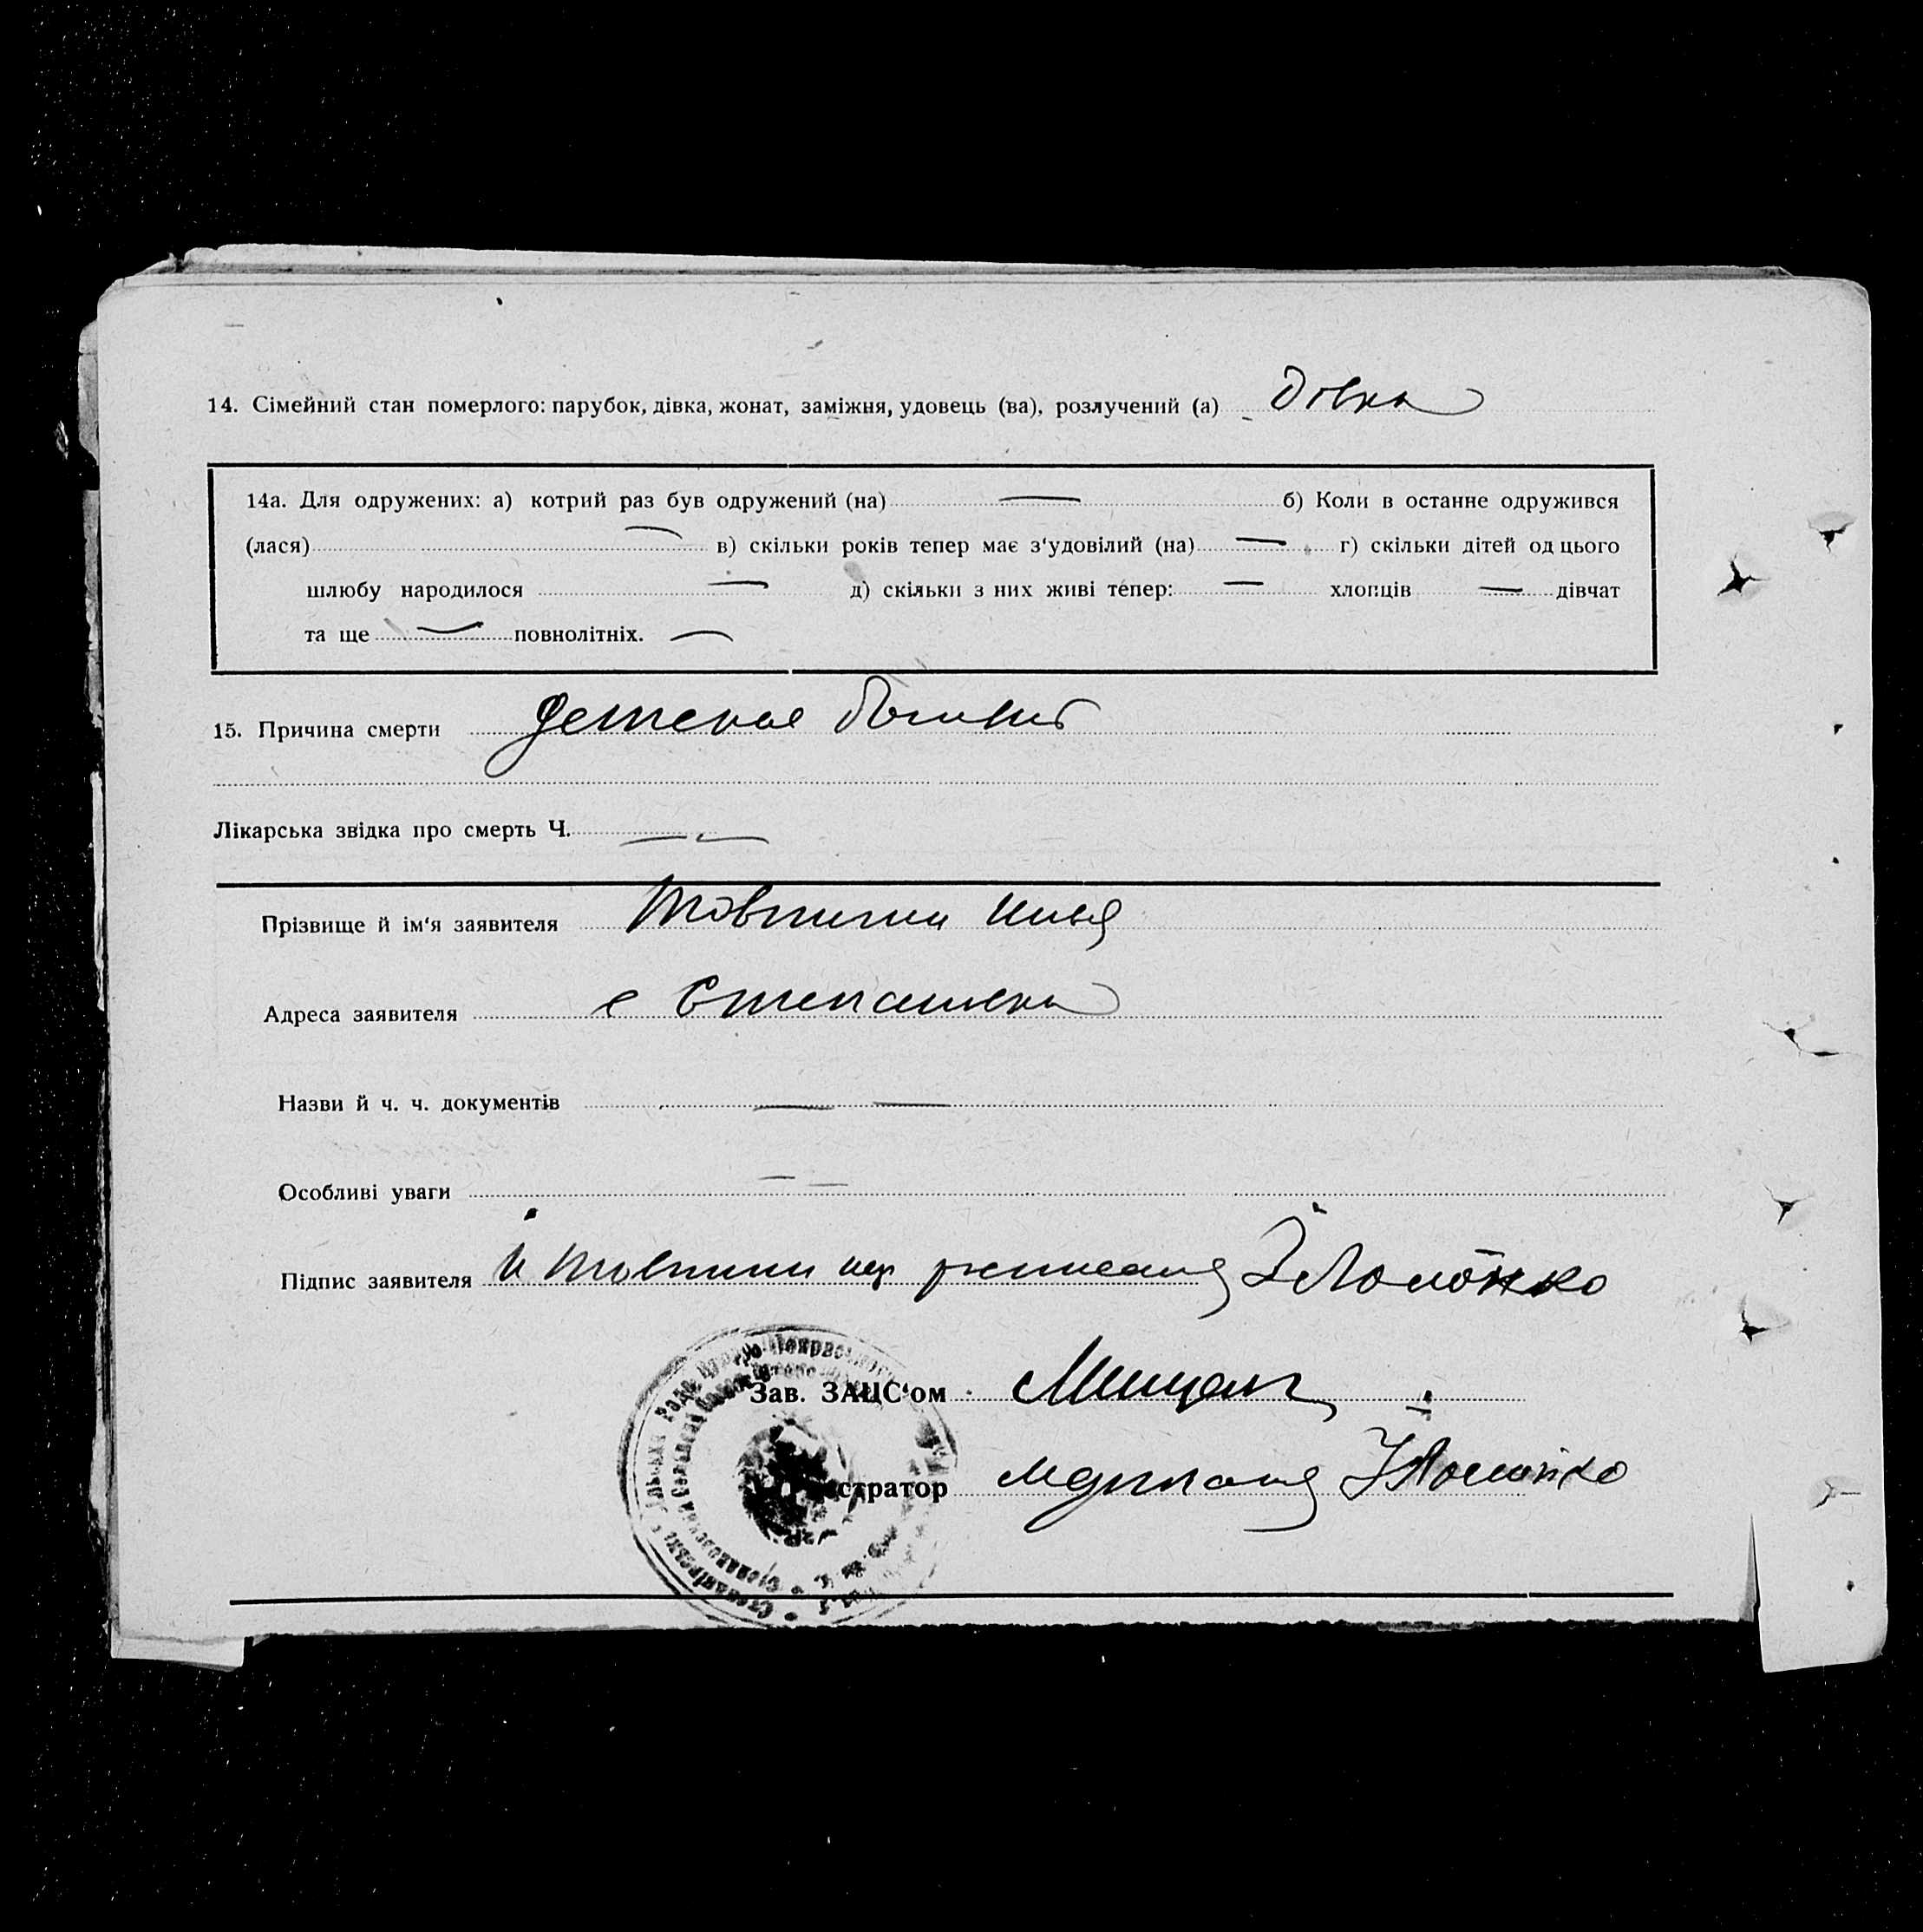 14. Сімейний стан померлого: парубок, дівка, жонат, заміжня, удовець (ва), розлучений (а) дівка
14а. Для одружених: а) котрий раз був одружений (на) — б) Коли в останне одружився
(лася) — в) скільки років тепер має з‘удовілий (на) — г) скільки дітей од цього
шлюбу народилося — д) скільки з них живі тепер: — хлопців — дівчат
та ще — повнолітніх. —
15. Причина смерти Детская
Лікарська звідка про смерть Ч. — —
Прізвище й ім‘я заявителя Товпига Илья
Адреса заявителя с Степашки
Назви й ч. ч. документів — —
Особливі уваги — —
Підпис заявителя И Товпига
Зав. ЗАЦС‘ом
стратор